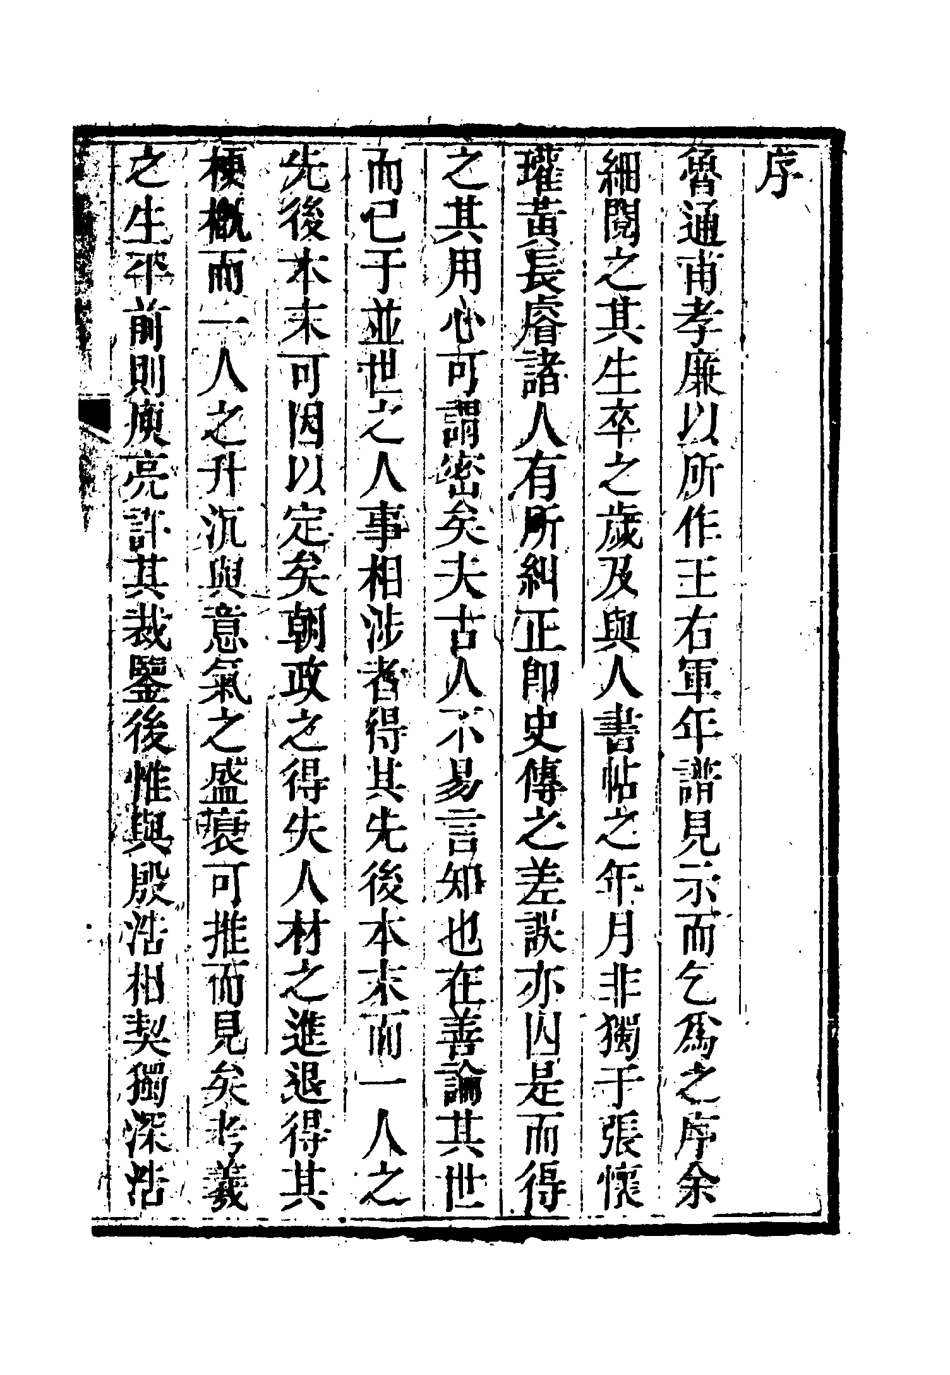 序
魯通甫孝廉以所作王右軍年譜見示而乞爲之序余
細閱之其生卒之歲及與人書帖之年月非獨于張懷
瓘黃長睿諸人有所糾正卽史傳之差誤亦因是而得
之其用心可謂密矣夫古人不易言知也在善論其世
而已于並世之人事相涉者得其先後本末而一人之
先後本末可因以定矣朝政之得失人材之進退得其
梗概而一人之升沉與意氣之盛衰可推而見矣考羲
之生平前則庾亮許其裁鑒後惟與殷浩相契獨深浩